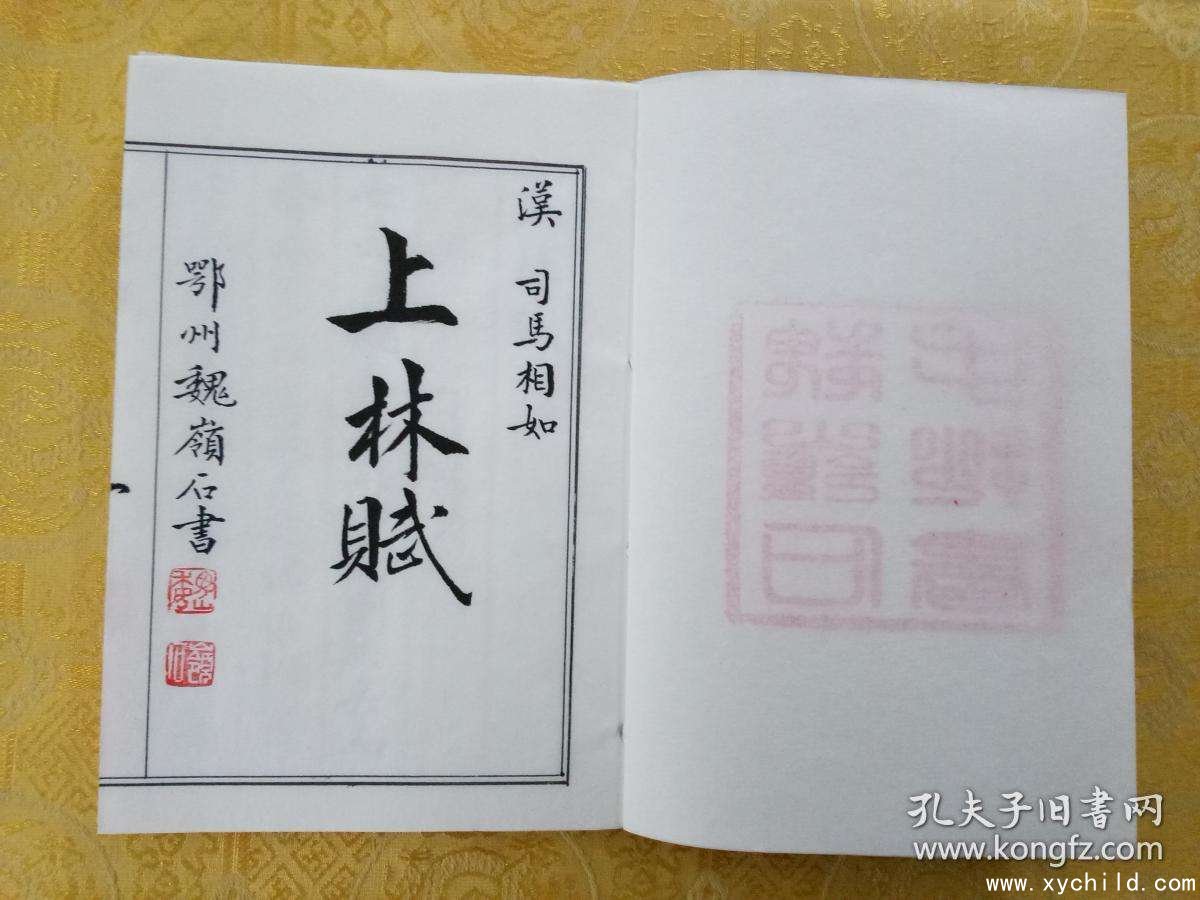 漢 司馬相如
上林賦
鄂州魏嶺石書
孔夫子旧书网
www.kongfz.com
www.xychild.com